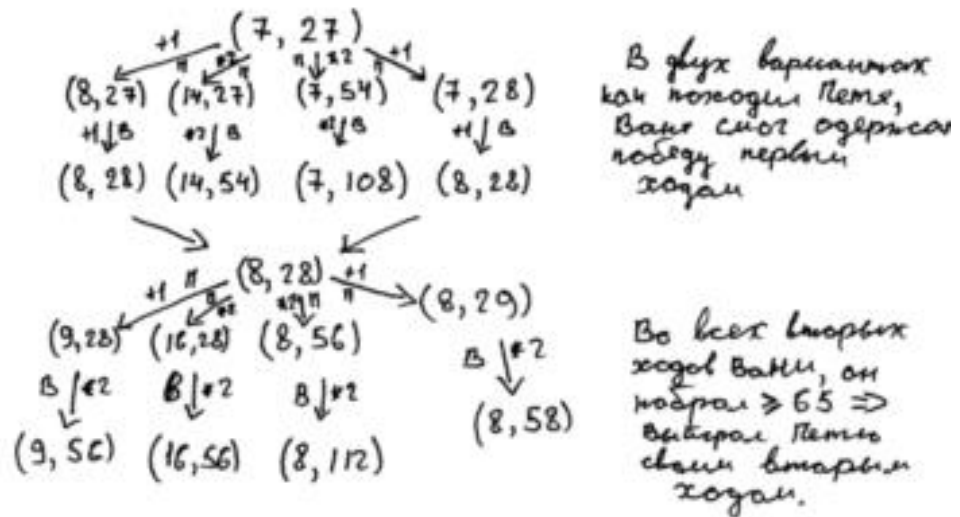 (7, 27)
+1 п *2 п п *2 п +1
(8,27) (14,27) (7,54) (7,28)
+1 В *2 В *2 В +1 В
(8, 28) (14,54) (7, 108) (8,28)
(8,28)
+1 п п *2 *2 п +1 п
(9,28) (16,28) (8,56) (8,29)
В *2 В *2 В *2 В *2
(9,56) (16,56) (8,112) (8,58)
В двух вариантах
как походил Петя,
Ваня смог одержать
победу первым
ходом
Во всех вторых
ходов Вани, он
набрал ≥ 65 =>
выиграл Петю
своим вторым
ходом.